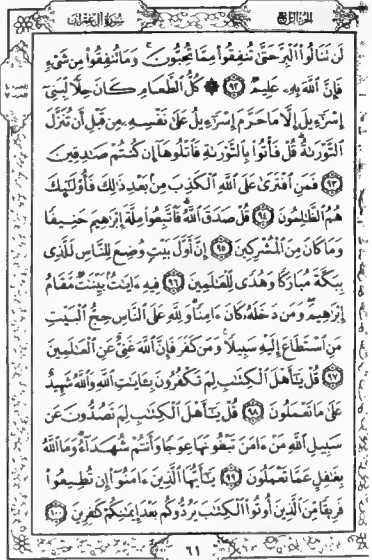 سُورَةُ آلِ عِمْرَانَ
الجُزْءُ الرَّابِعُ
لَن تَنَالُوا۟ ٱلْبِرَّ حَتَّىٰ تُنفِقُوا۟ مِمَّا تُحِبُّونَ ۚ وَمَا تُنفِقُوا۟ مِن شَىْءٍ
فَإِنَّ ٱللَّهَ بِهِۦ عَلِيمٌ ٩٢ ۞ كُلُّ ٱلطَّعَامِ كَانَ حِلًّا لِّبَنِىٓ
إِسْرَٰٓءِيلَ إِلَّا مَا حَرَّمَ إِسْرَٰٓءِيلُ عَلَىٰ نَفْسِهِۦ مِن قَبْلِ أَن تُنَزَّلَ
ٱلتَّوْرَىٰةُ ۗ قُلْ فَأْتُوا۟ بِٱلتَّوْرَىٰةِ فَٱتْلُوهَآ إِن كُنتُمْ صَٰدِقِينَ
٩٣ فَمَنِ ٱفْتَرَىٰ عَلَى ٱللَّهِ ٱلْكَذِبَ مِنۢ بَعْدِ ذَٰلِكَ فَأُو۟لَٰٓئِكَ
هُمُ ٱلظَّٰلِمُونَ ٩٤ قُلْ صَدَقَ ٱللَّهُ ۗ فَٱتَّبِعُوا۟ مِلَّةَ إِبْرَٰهِيمَ حَنِيفًا
وَمَا كَانَ مِنَ ٱلْمُشْرِكِينَ ٩٥ إِنَّ أَوَّلَ بَيْتٍ وُضِعَ لِلنَّاسِ لَلَّذِى
بِبَكَّةَ مُبَارَكًا وَهُدًى لِّلْعَٰلَمِينَ ٩٦ فِيهِ ءَايَٰتٌۢ بَيِّنَٰتٌ مَّقَامُ
إِبْرَٰهِيمَ ۖ وَمَن دَخَلَهُۥ كَانَ ءَامِنًا ۗ وَلِلَّهِ عَلَى ٱلنَّاسِ حِجُّ ٱلْبَيْتِ
مَنِ ٱسْتَطَاعَ إِلَيْهِ سَبِيلًا ۚ وَمَن كَفَرَ فَإِنَّ ٱللَّهَ غَنِىٌّ عَنِ ٱلْعَٰلَمِينَ
٩٧ قُلْ يَٰٓأَهْلَ ٱلْكِتَٰبِ لِمَ تَكْفُرُونَ بِـَٔايَٰتِ ٱللَّهِ وَٱللَّهُ شَهِيدٌ
عَلَىٰ مَا تَعْمَلُونَ ٩٨ قُلْ يَٰٓأَهْلَ ٱلْكِتَٰبِ لِمَ تَصُدُّونَ عَن
سَبِيلِ ٱللَّهِ مَنْ ءَامَنَ تَبْغُونَهَا عِوَجًا وَأَنتُمْ شُهَدَآءُ ۗ وَمَا ٱللَّهُ
بِغَٰفِلٍ عَمَّا تَعْمَلُونَ ٩٩ يَٰٓأَيُّهَا ٱلَّذِينَ ءَامَنُوٓا۟ إِن تُطِيعُوا۟
فَرِيقًا مِّنَ ٱلَّذِينَ أُوتُوا۟ ٱلْكِتَٰبَ يَرُدُّوكُم بَعْدَ إِيمَٰنِكُمْ كَٰفِرِينَ ١٠٠
٦١